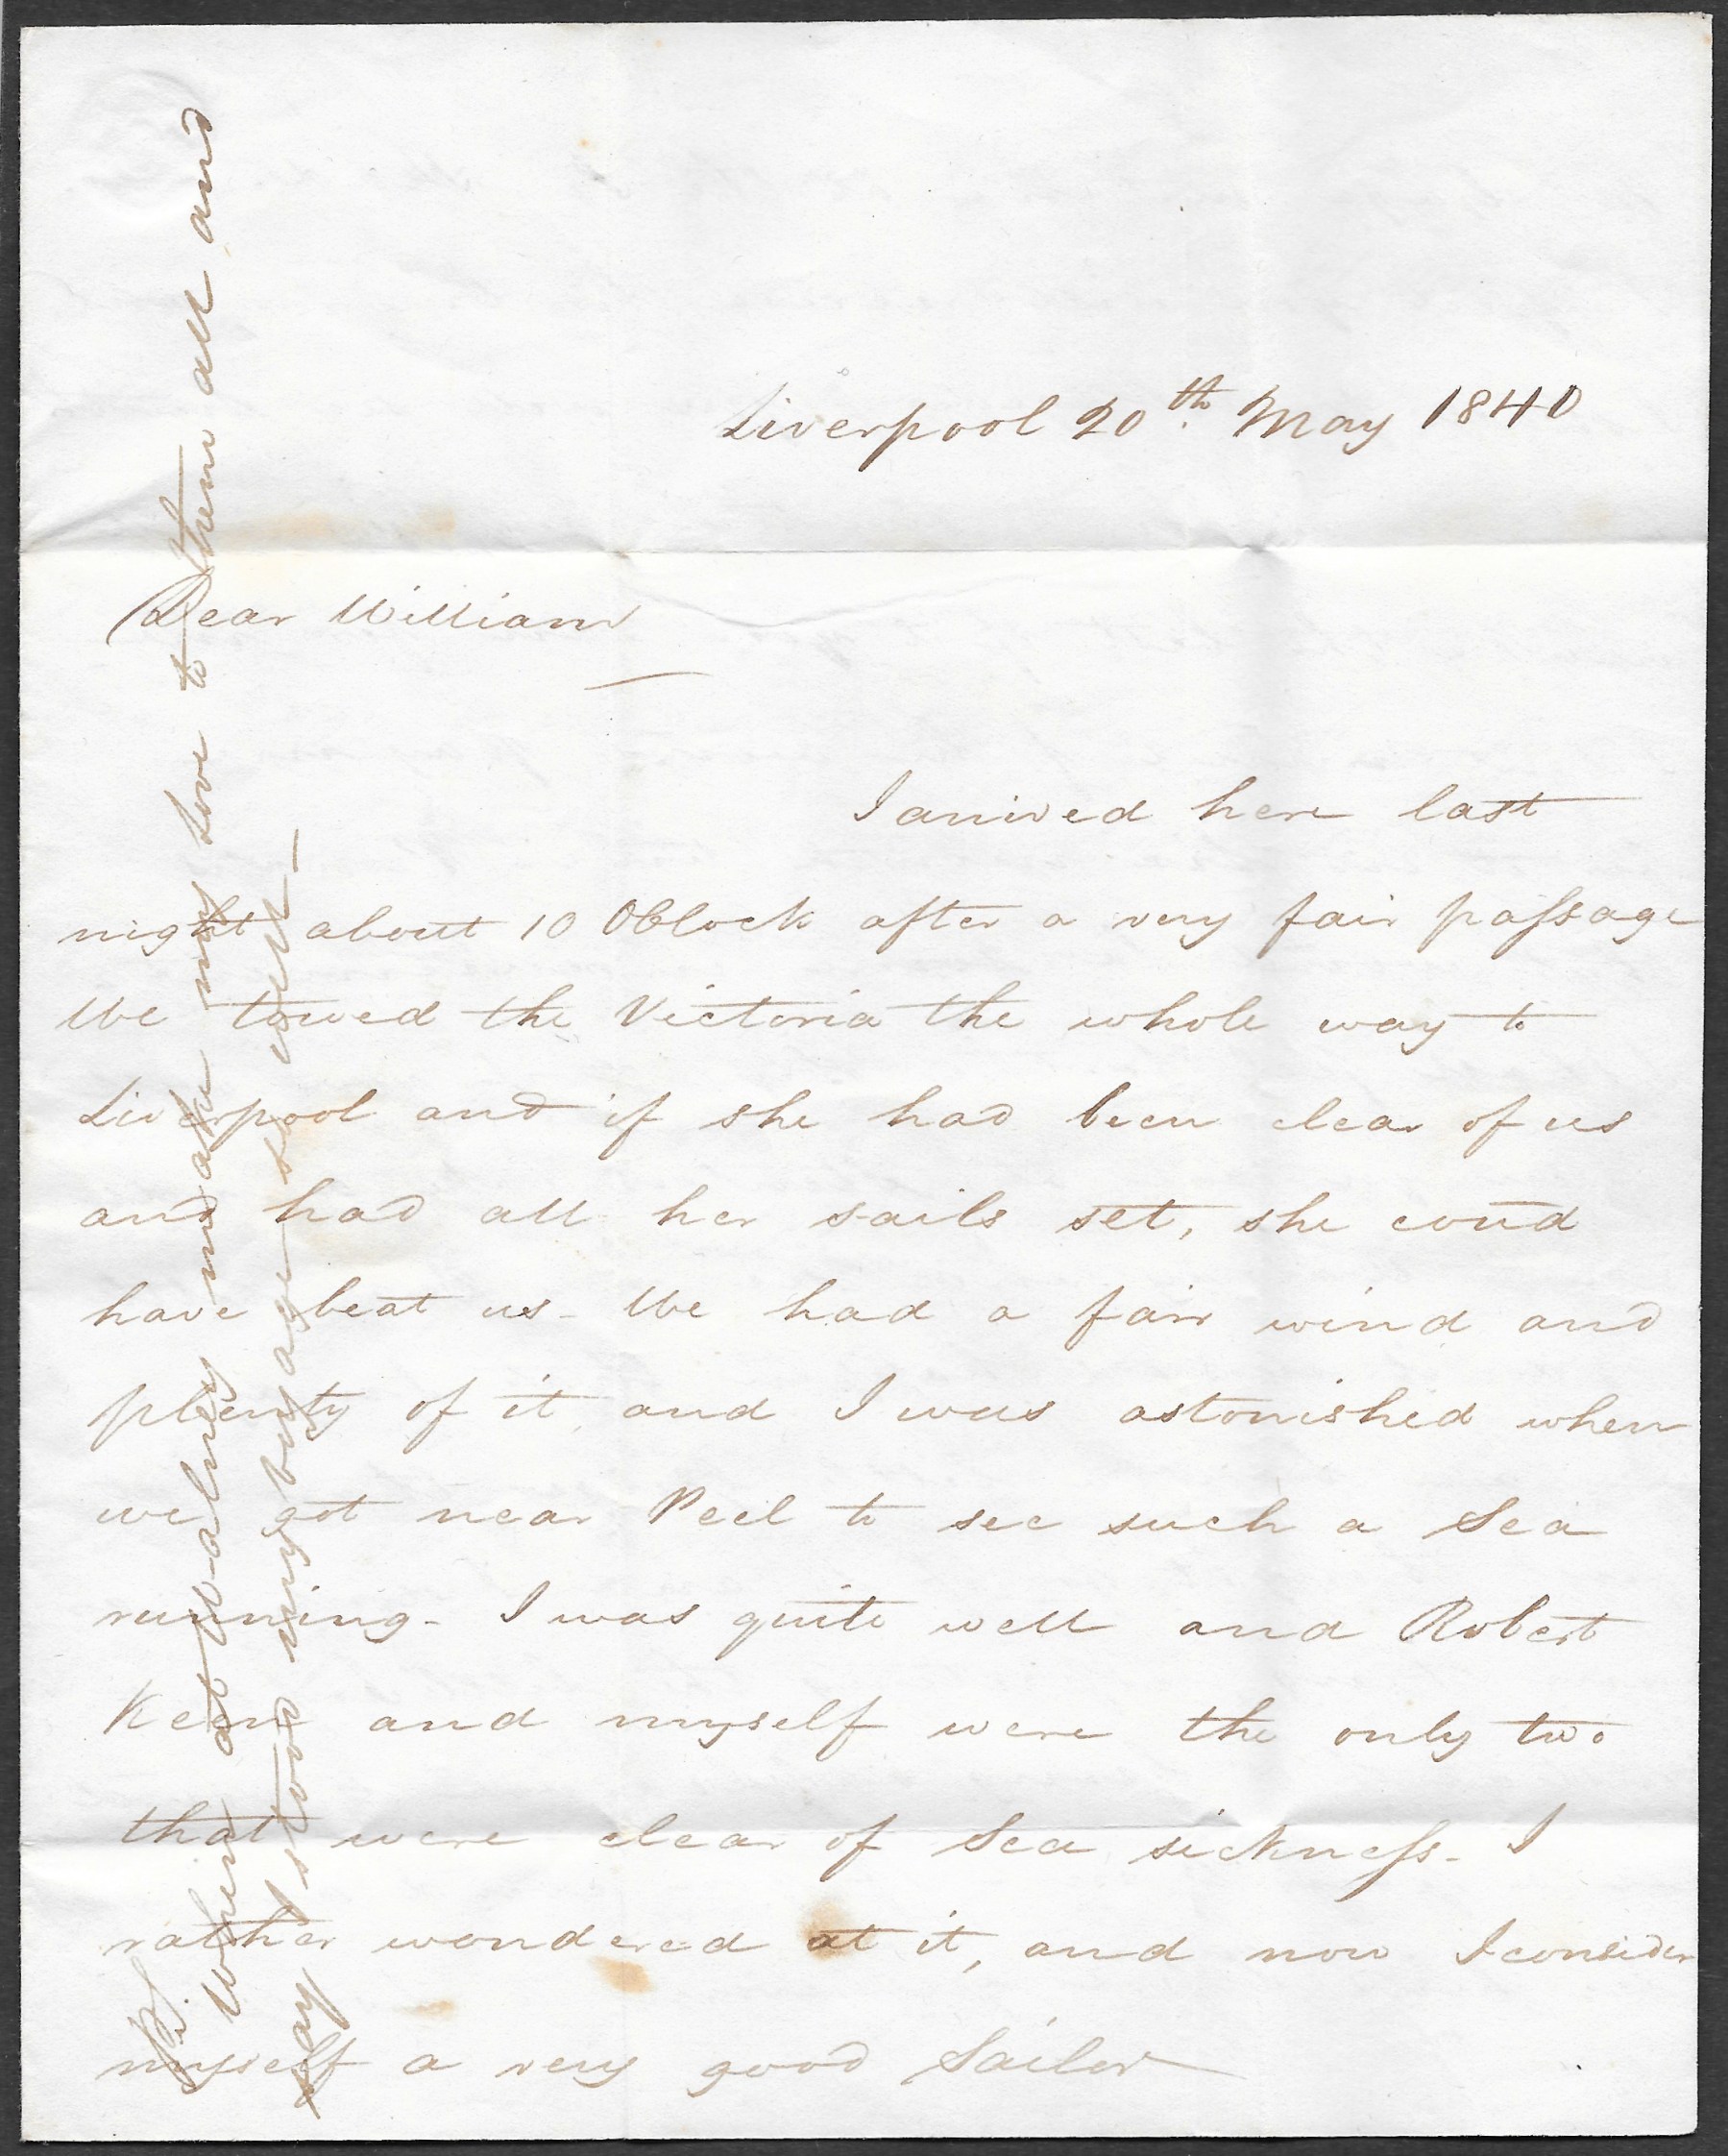 Liverpool 20th May 1840
Dear William
I arrived here last
night about 10 OClock after a very fair passage
We towed the Victoria the whole way to
Liverpool and if she had been clear of us
and had all her sails set, she coud
have beat us - We had a fair wind and
plenty of it and I was astonished when
we got near Peel to see such a Sea
running - I was quite well and Robert
Keen and myself were the only two
that were clear of Sea sickness - I
rather wondered at it, and now I consider
myself a very good Sailor
PS.
When at Walney make my Love to them all and
say I stood my voyage so well -